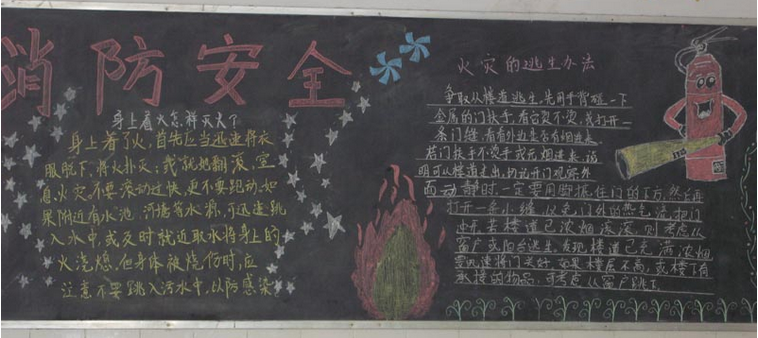 消防安全
身上着火怎样灭火？
身上着了火,首先应当迅速将衣
服脱下,将火扑灭;或就地翻滚,
息火灾,不要滚动过快,更不要跑动,如
果附近有水池、河塘等水源,可迅速跳
入水中,或及时就近取水将身上的
火浇熄,但身体被烧伤时,应
注意不要跳入污水中,以防感染
火灾的逃生办法
争取从楼道逃生,先用手背碰一下
金属的门扶手,看它烫不烫,或打开一
条门缝,看看外边是否有烟进来
若门扶手不烫手或无烟进来,说
明可从楼道走出,切记开门观察外
面动静时一定要用脚抵住门的下方,然后再
打开一条小缝,以免门外的热气流把门
冲开,若楼道已浓烟滚滚,则考虑从
窗户或阳台逃生,发现楼道已充满浓烟
要迅速将门关好,如果楼层不高,或楼下有
承接的物品,可考虑从窗户跳下